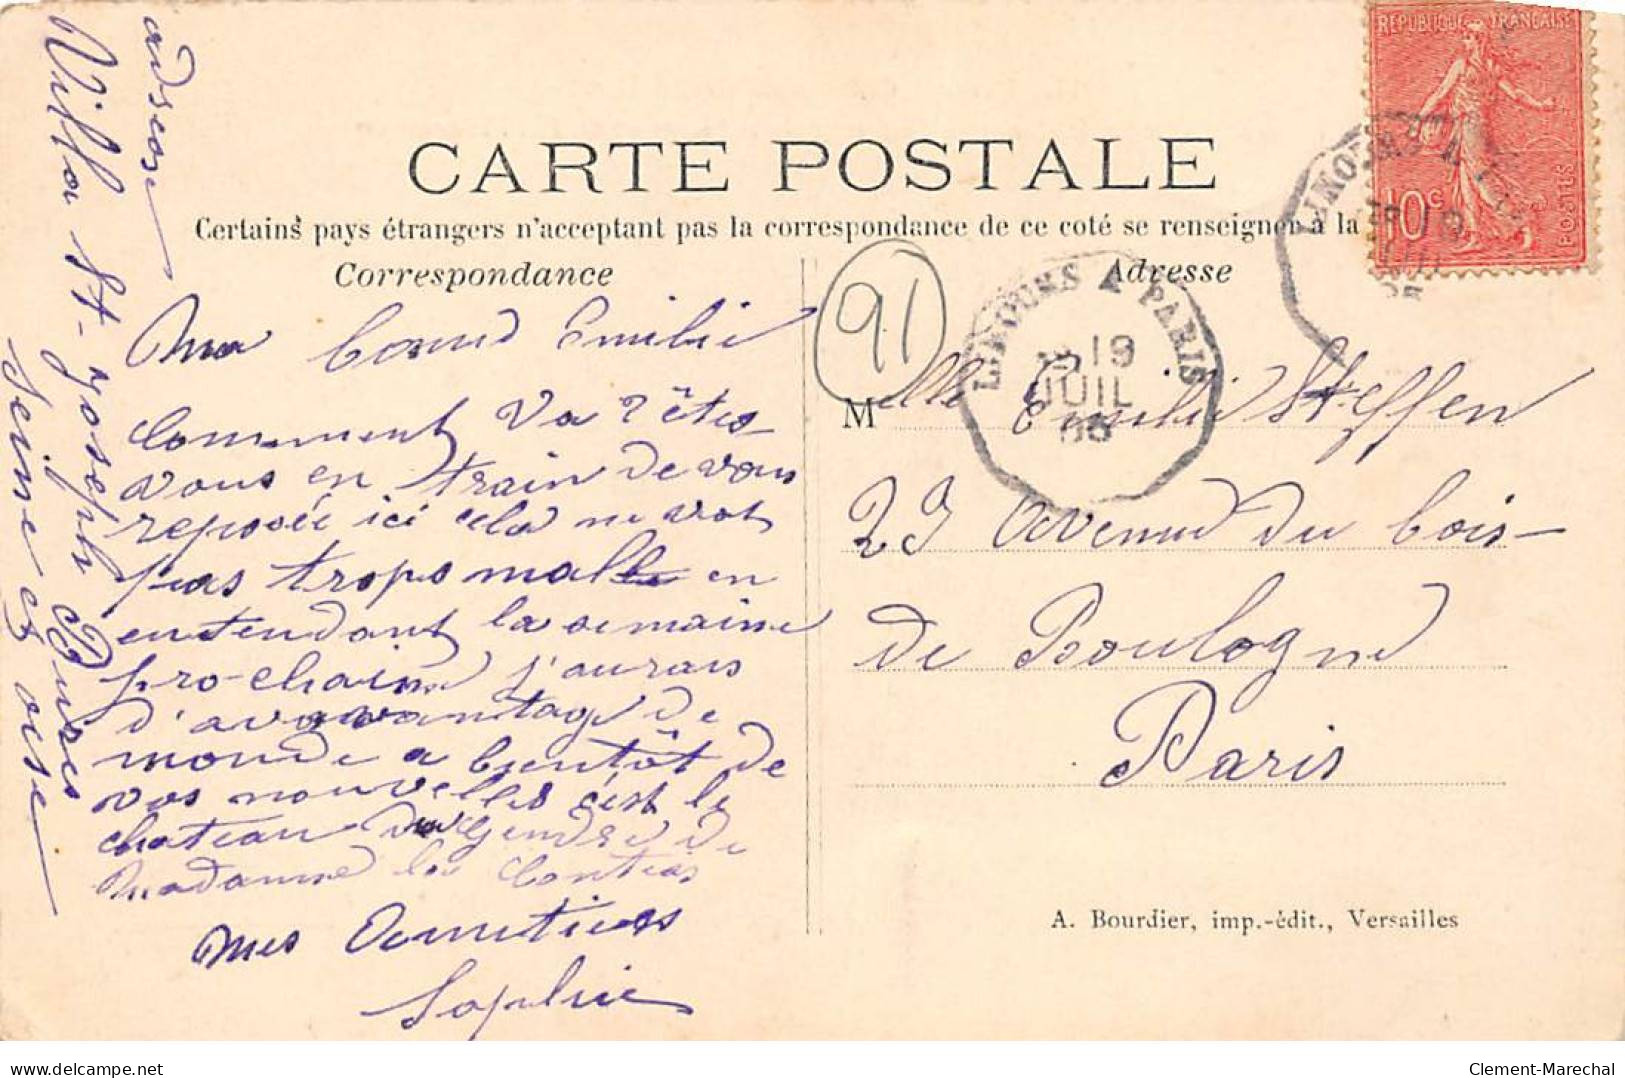 adresse
Villa St-Joseph Bures
Seine et oise
CARTE POSTALE
Certains pays étrangers n'acceptant pas la correspondance de ce coté se renseigner à la
Correspondance
Adresse
REPUBLIQUE FRANÇAISE
10c
POSTES
LIMOURS A PARIS
19
JUIL
LIMOURS A
91
Ma Emilie
Comment va? êtes
vous en train de vous
reposée ici cela ne vat
pas trops mal en
entendant la semaine
prochaine j'aurais
d'avavantage de
monde a bientôt de
vos nouvelles c'est le
chateau du gendre de
madame la
mes Amities
Sophie
Mlle Emilie Steffen
23 Avenue du bois-
de Boulogne
Paris
A. Bourdier, imp.-édit., Versailles
delcampe.net
Clement-Marechal